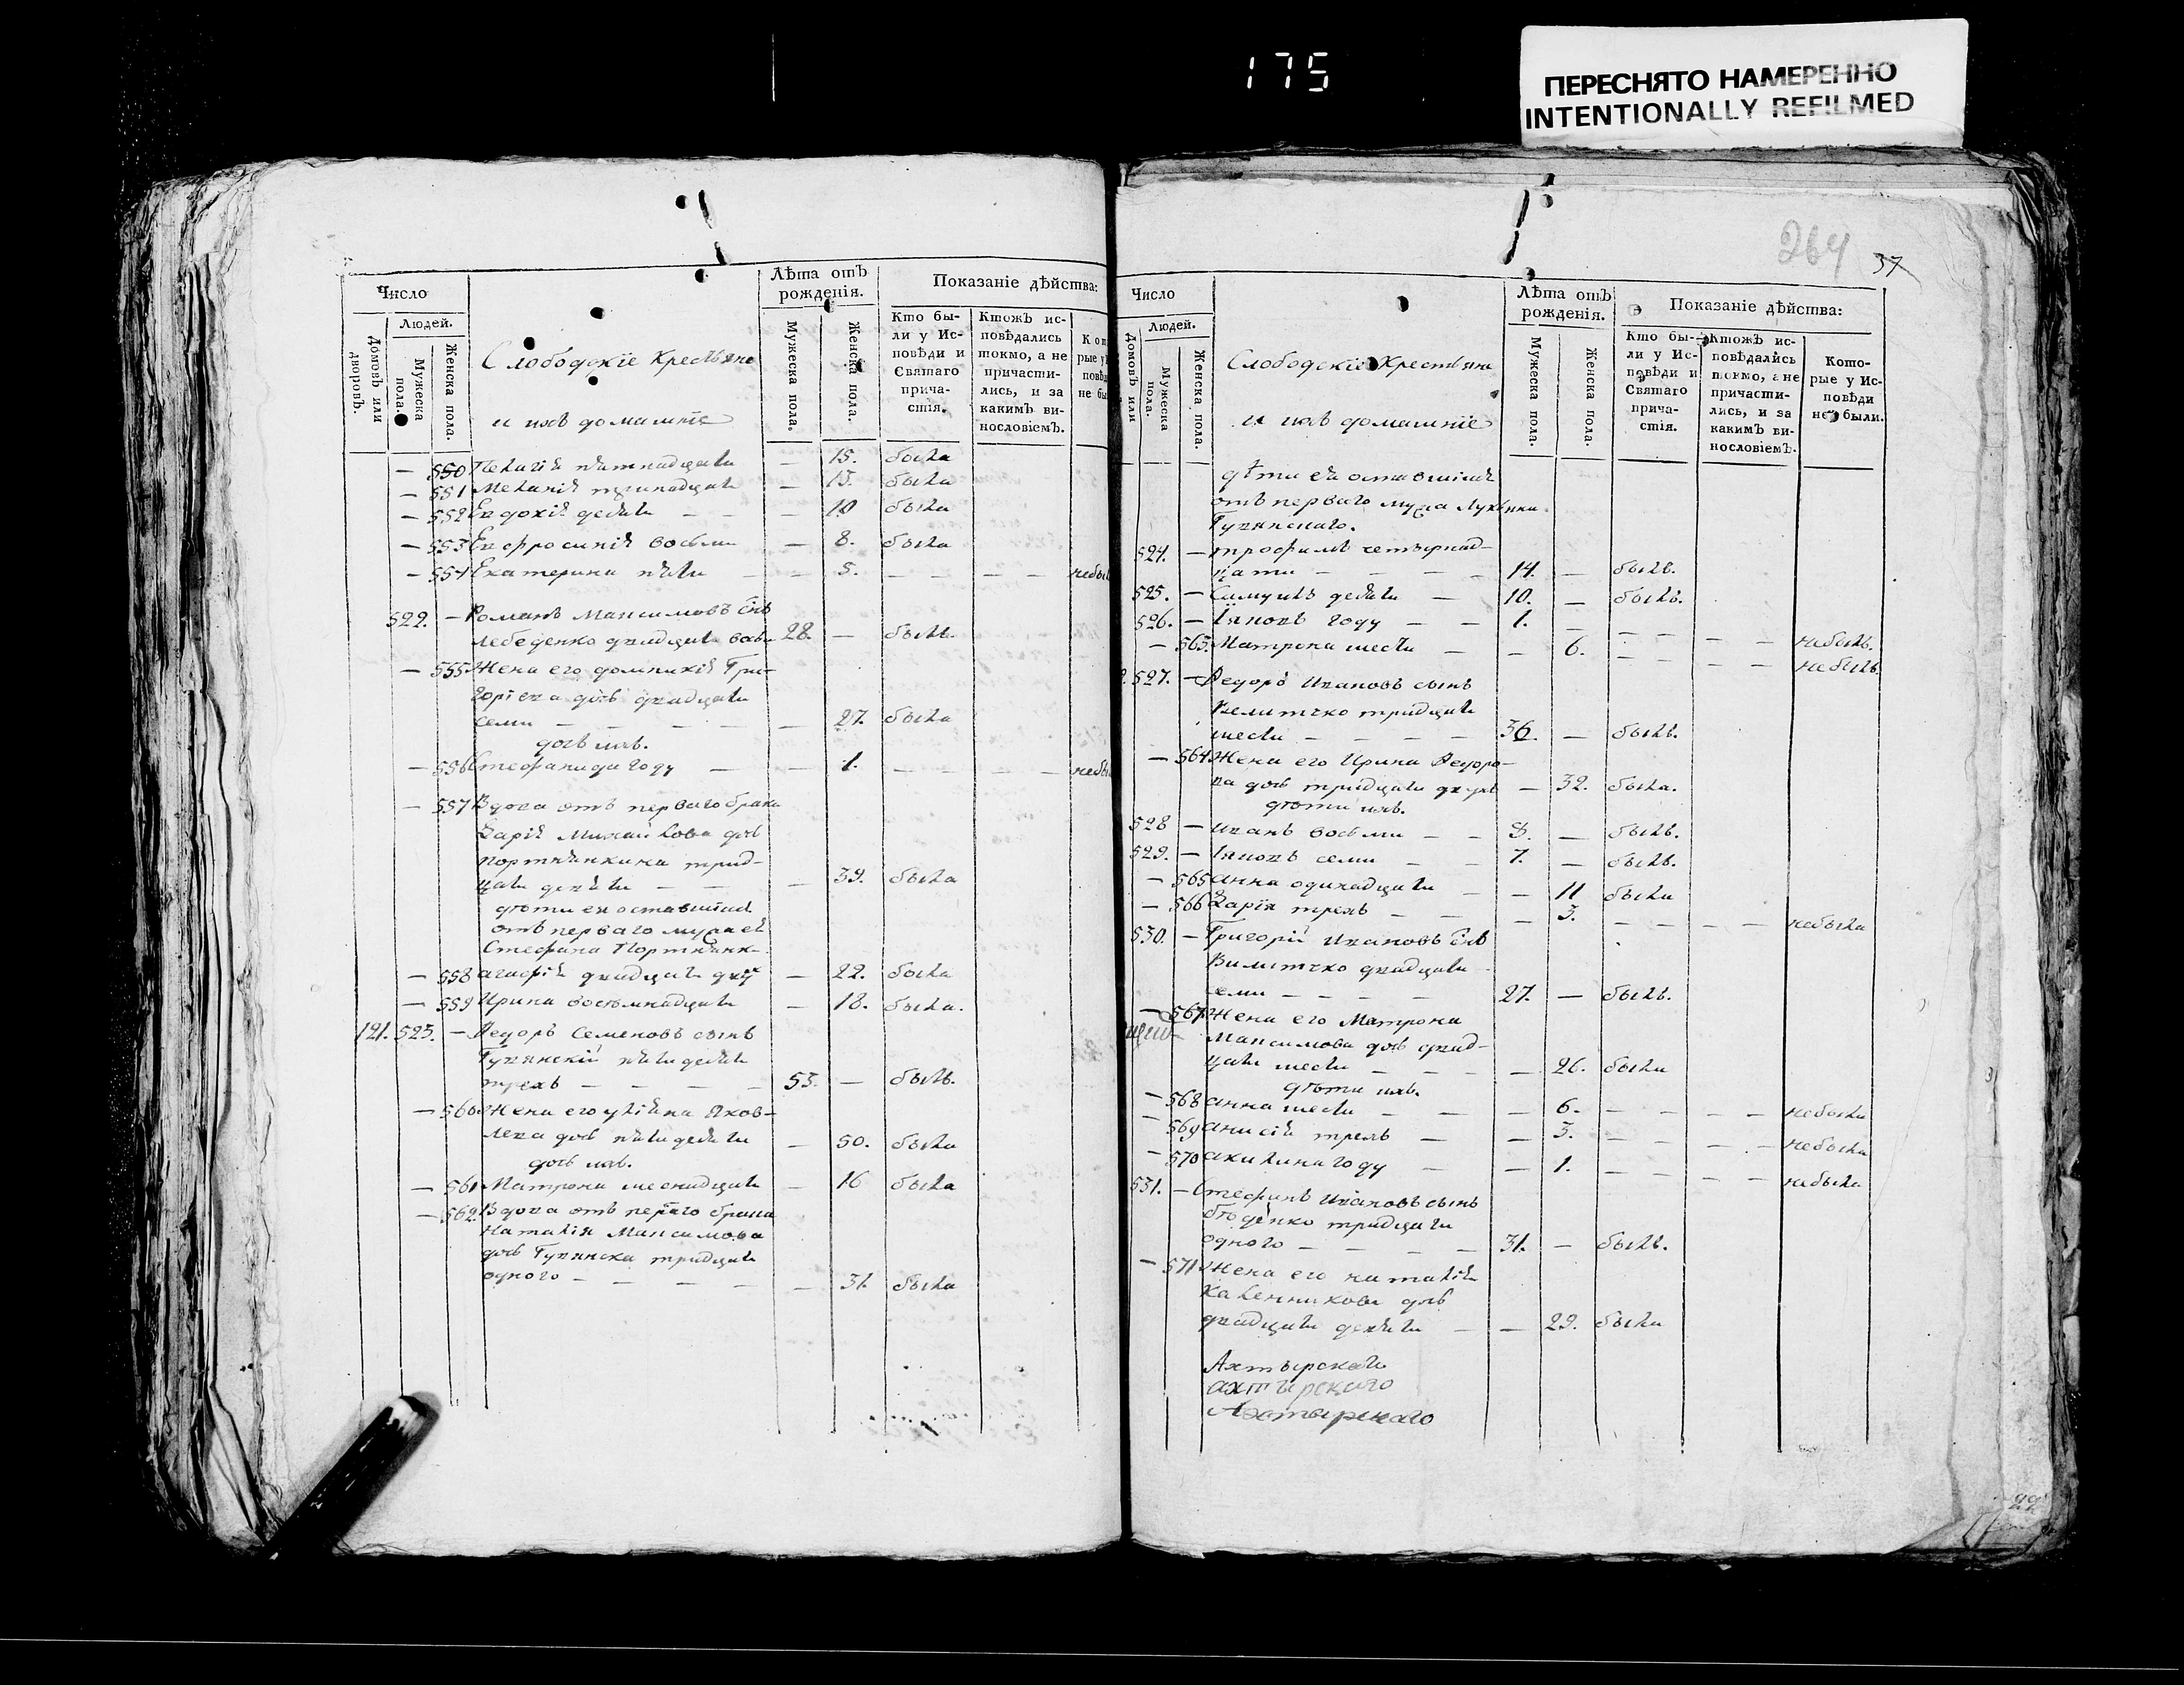 175
ПЕРЕСНЯТО НАМЕРЕННО
INTENTIONALLY REFILMED
264
37
Число
Людей.
Домовъ или дворовъ.
Мужеска пола.
Женска пола.
Слободскіе крестьяне
и ихъ домашніе
Лѣта отъ рожденія.
Мужеска пола.
Женска пола.
Показаніе дѣйства:
Кто бы-
ли у Ис-
повѣди и
Святаго
прича-
стія.
Ктожъ ис-
повѣдались
токмо, а не
причасти-
лись, и за
какимъ ви-
нословіемъ.
— 550 Пелагія пятнадцати — 15. была
— 551 Меланія тринадцати — 13. была
— 552 Евдокія десяти — — — 10 была
— 553 Евфросинія восьми — 8. была
— 554 Екатерина пяти — — 5. — — — небы
522. — Романъ Максимовъ снъ
Лебеденко двадцати восьми 28. — былъ.
— 555 Жена его Домникія Гри-
горіева дочь двадцати
семи — — — — — 27. была
дочь ихъ.
— 556 Стефанида году — — 1. — — — — небы
— 557 Вдова отъ перваго брака
Дарія Михайлова дочь
тридцати девяти — — — 39. была
дѣти ея оставшіися
отъ перваго мужа ей
Стефана
— 558 Агафія двадцати двухъ — 22. была
— 559 Ирина восемнадцати — 18. была.
121. 523. — Ѳедоръ Семеновъ сынъ
пятидесяти
трехъ — — — — 53. — былъ.
— 560 Жена его Уліяна Яков-
лева дочь пятидесяти — 50. была
дочь ихъ.
— 561 Матрона шеснадцати — 16 была
— 562. Вдова отъ перваго брака
Наталія Максимова
дочь тридцати
одного — — — — — 31. была
Число
Людей.
Домовъ или
Мужеска пола.
Женска пола.
Слободскіе Крестьяне
и ихъ домашніе
Лѣта отъ рожденія.
Мужеска пола.
Женска пола.
Показаніе дѣйства:
Кто бы-
ли у Ис-
повѣди и
Святаго
прича-
стія.
Ктожъ ис-
повѣдались
токмо, а не
причасти-
лись, и за
какимъ ви-
нословіемъ.
Кото-
рые у Ис-
повѣди
не были.
дѣти ея оставшіися
отъ перваго мужа
524. — Трофимъ четырнад-
цати — — — — 14. — былъ.
525. — Самуилъ десяти — 10. — былъ.
526. — Іяковъ году — — 1. — — — — — небылъ.
— 563. Матрона шести — — 6. — — — — небылъ.
527. — Ѳедоръ Ивановъ сынъ
Велитчко тридцати
шести — — — — 36. — былъ.
— 564 Жена его Ирина Ѳедоро-
ва дочь тридцати двухъ — 32. была.
дѣти ихъ.
528 — Иванъ восьми — — 8. — былъ.
529. — Іяковъ семи — — 7. — былъ.
— 565 Анна одинадцати — — 11 была
— 566 Дарія трехъ — — — 3. — — — — небыла
530. — Григорій Ивановъ снъ
Вилитчко двадцати
семи — — — — 27. — былъ.
— 567 Жена его Матрона
Максимова дочь двад-
цати шести — — — — 26. была
дѣти ихъ.
— 568 Анна шести — — — 6. — — — — небыла
— 569 Анисія трехъ — — 3. — — — — небыла
— 570 Акилина году — — 1. — — — — небыла
531. — Стефанъ Ивановъ сынъ
тридцати
одного — — — — 31. — былъ.
— 571 Жена его Наталія
Калинникова дочь
двадцати девяти — — 29. была
Ахтырскаго
ахтырскаго
Ахтырскаго